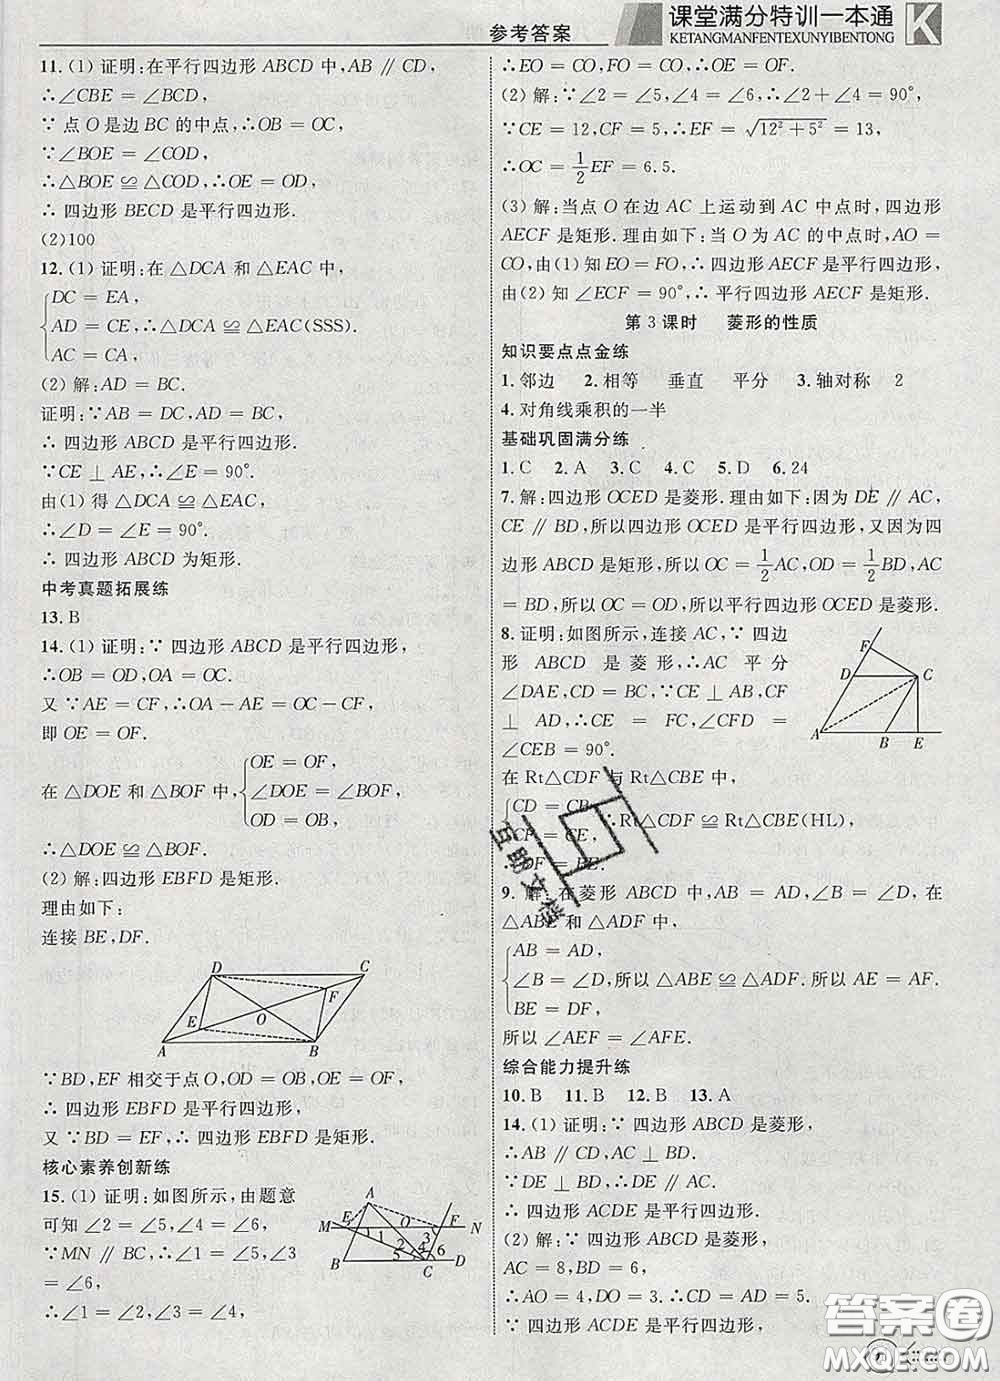 参考答案
课堂满分特训一本通
KETANGMANFENTEXUNYIBENTONG
K
11. (1) 证明:在平行四边形 ABCD 中,AB∥CD,
∴∠CBE=∠BCD,
∵点 O 是边 BC 的中点,∴OB=OC,
∵∠BOE=∠COD,
∴△BOE≌△COD,∴OE=OD,
∴四边形 BECD 是平行四边形.
(2)100
12. (1) 证明:在△DCA 和△EAC 中,
DC=EA,
AD=CE,∴△DCA≌△EAC(SSS).
AC=CA,
(2) 解:AD=BC.
证明:∵AB=DC,AD=BC,
∴四边形 ABCD 是平行四边形.
∵CE⊥AE,∴∠E=90°.
由(1)得△DCA≌△EAC,
∴∠D=∠E=90°.
∴四边形 ABCD 为矩形.
中考真题拓展练
13. B
14. (1) 证明:∵四边形 ABCD 是平行四边形,
∴OB=OD,OA=OC.
又∵AE=CF,∴OA-AE=OC-CF,
即 OE=OF.
在△DOE 和△BOF 中,
OE=OF,
∠DOE=∠BOF,
OD=OB,
∴△DOE≌△BOF.
(2) 解:四边形 EBFD 是矩形.
理由如下:
连接 BE,DF.
D C F E O A B
∵BD,EF 相交于点 O,OD=OB,OE=OF,
∴四边形 EBFD 是平行四边形,
又∵BD=EF,∴四边形 EBFD 是矩形.
核心素养创新练
15. (1) 证明:如图所示,由题意
可知∠2=∠5,∠4=∠6,
∵MN∥BC,∴∠1=∠5,∠3
=∠6,
∴∠1=∠2,∠3=∠4,
A M E O F N 1 2 3 4 5 6 B C D
∴EO=CO,FO=CO,∴OE=OF.
(2) 解:∵∠2=∠5,∠4=∠6,∴∠2+∠4=90°,
∵CE=12,CF=5,∴EF=√(12²+5²)=13,
∴OC=1/2EF=6.5.
(3) 解:当点 O 在边 AC 上运动到 AC 中点时,四边形
AECF 是矩形.理由如下:当 O 为 AC 的中点时,AO=
CO,由(1)知 EO=FO,∴四边形 AECF 是平行四边形,
由(2)知∠ECF=90°,∴平行四边形 AECF 是矩形.
第 3 课时 菱形的性质
知识要点点金练
1. 邻边 2. 相等 垂直 平分 3. 轴对称 2
4. 对角线乘积的一半
基础巩固满分练
1. C 2. A 3. C 4. C 5. D 6. 24
7. 解:四边形 OCED 是菱形.理由如下:因为 DE∥AC,
CE∥BD,所以四边形 OCED 是平行四边形,又因为四
边形 ABCD 是矩形,所以 OC=1/2AC,OD=1/2BD,AC
=BD,所以 OC=OD,所以平行四边形 OCED 是菱形.
8. 证明:如图所示,连接 AC,∵四边
形 ABCD 是菱形,∴AC 平分
∠DAE,CD=BC,∵CE⊥AB,CF
⊥AD,∴CE=FC,∠CFD=
∠CEB=90°.
F D C A B E
在 Rt△CDF 与 Rt△CBE 中,
CD=CB,
CF=CE,
∴Rt△CDF≌Rt△CBE(HL),
∴DF=BE.
9. 解:在菱形 ABCD 中,AB=AD,∠B=∠D,在
△ABE 和△ADF 中,
AB=AD,
∠B=∠D,所以△ABE≌△ADF,所以 AE=AF.
BE=DF,
所以∠AEF=∠AFE.
综合能力提升练
10. B 11. B 12. B 13. A
14. (1) 证明:∵四边形 ABCD 是菱形,
∴AB∥CD,AC⊥BD.
∵DE⊥BD,∴DE∥AC.
∴四边形 ACDE 是平行四边形.
(2) 解:∵四边形 ABCD 是菱形,
AC=8,BD=6,
∴AO=4,DO=3.∴CD=AD=5.
∵四边形 ACDE 是平行四边形,
互助文档
答案圈
MXQE.COM